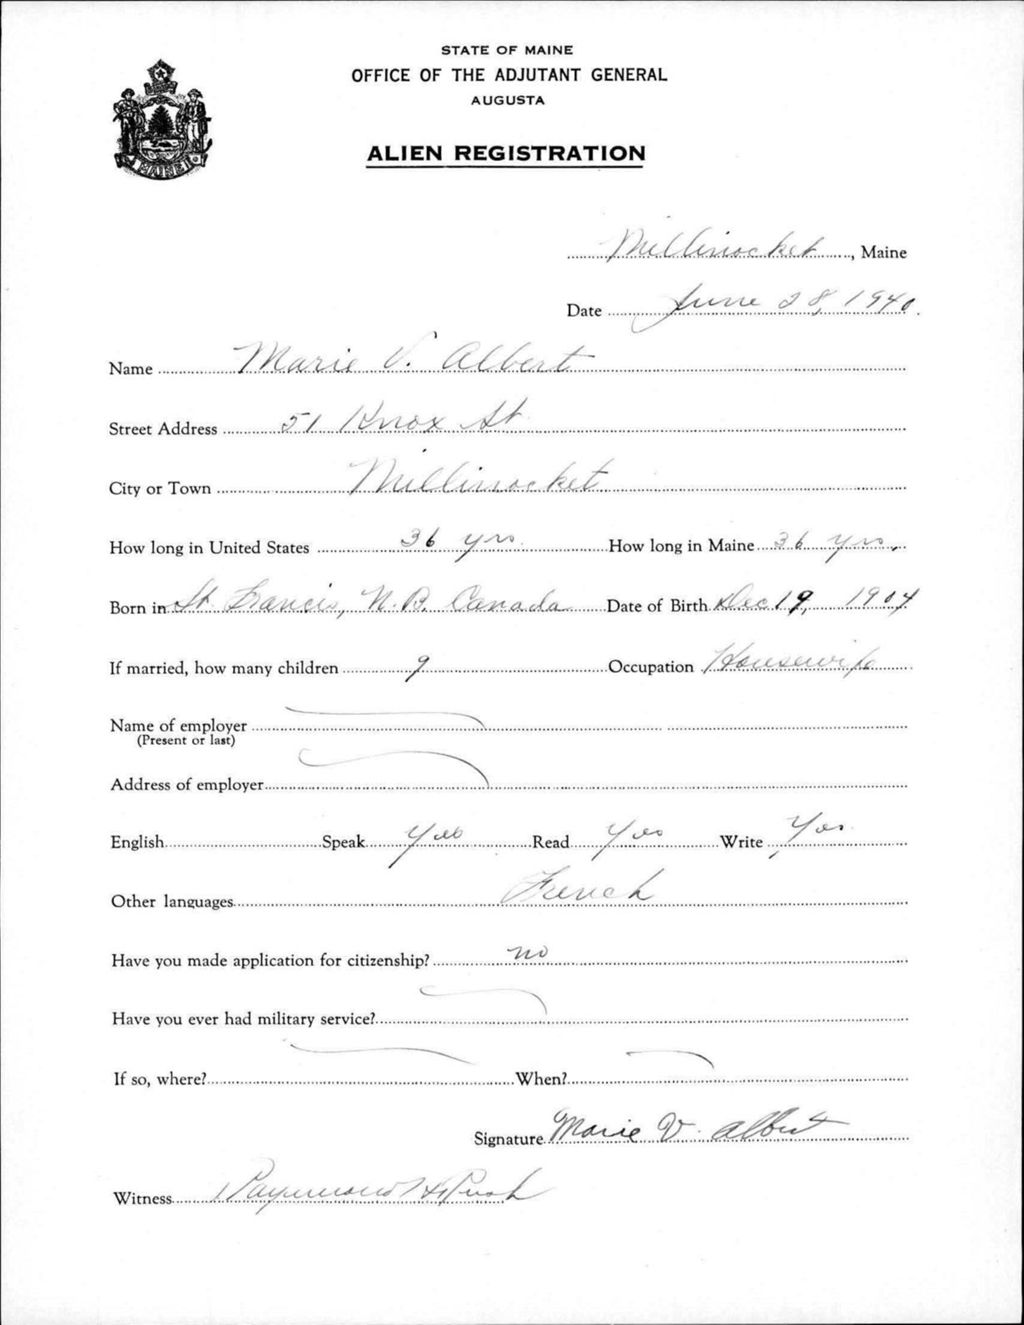 STATE OF MAINE
OFFICE OF THE ADJUTANT GENERAL
AUGUSTA
ALIEN REGISTRATION
MAINE
Millinocket, Maine
Date June 28, 1940.
Name Marie V. Albert
Street Address 51 Knox St
City or Town Millinocket
How long in United States 36 yrs. How long in Maine 36 yrs.
Born in St. Francis, N.B. Canada Date of Birth Dec 19, 1904
If married, how many children 9 Occupation Housewife
Name of employer
(Present or last)
Address of employer
English Speak Yes Read Yes Write Yes
Other languages French
Have you made application for citizenship? no
Have you ever had military service?
If so, where? When?
Signature Marie V. Albert
Witness Raymond H Rush